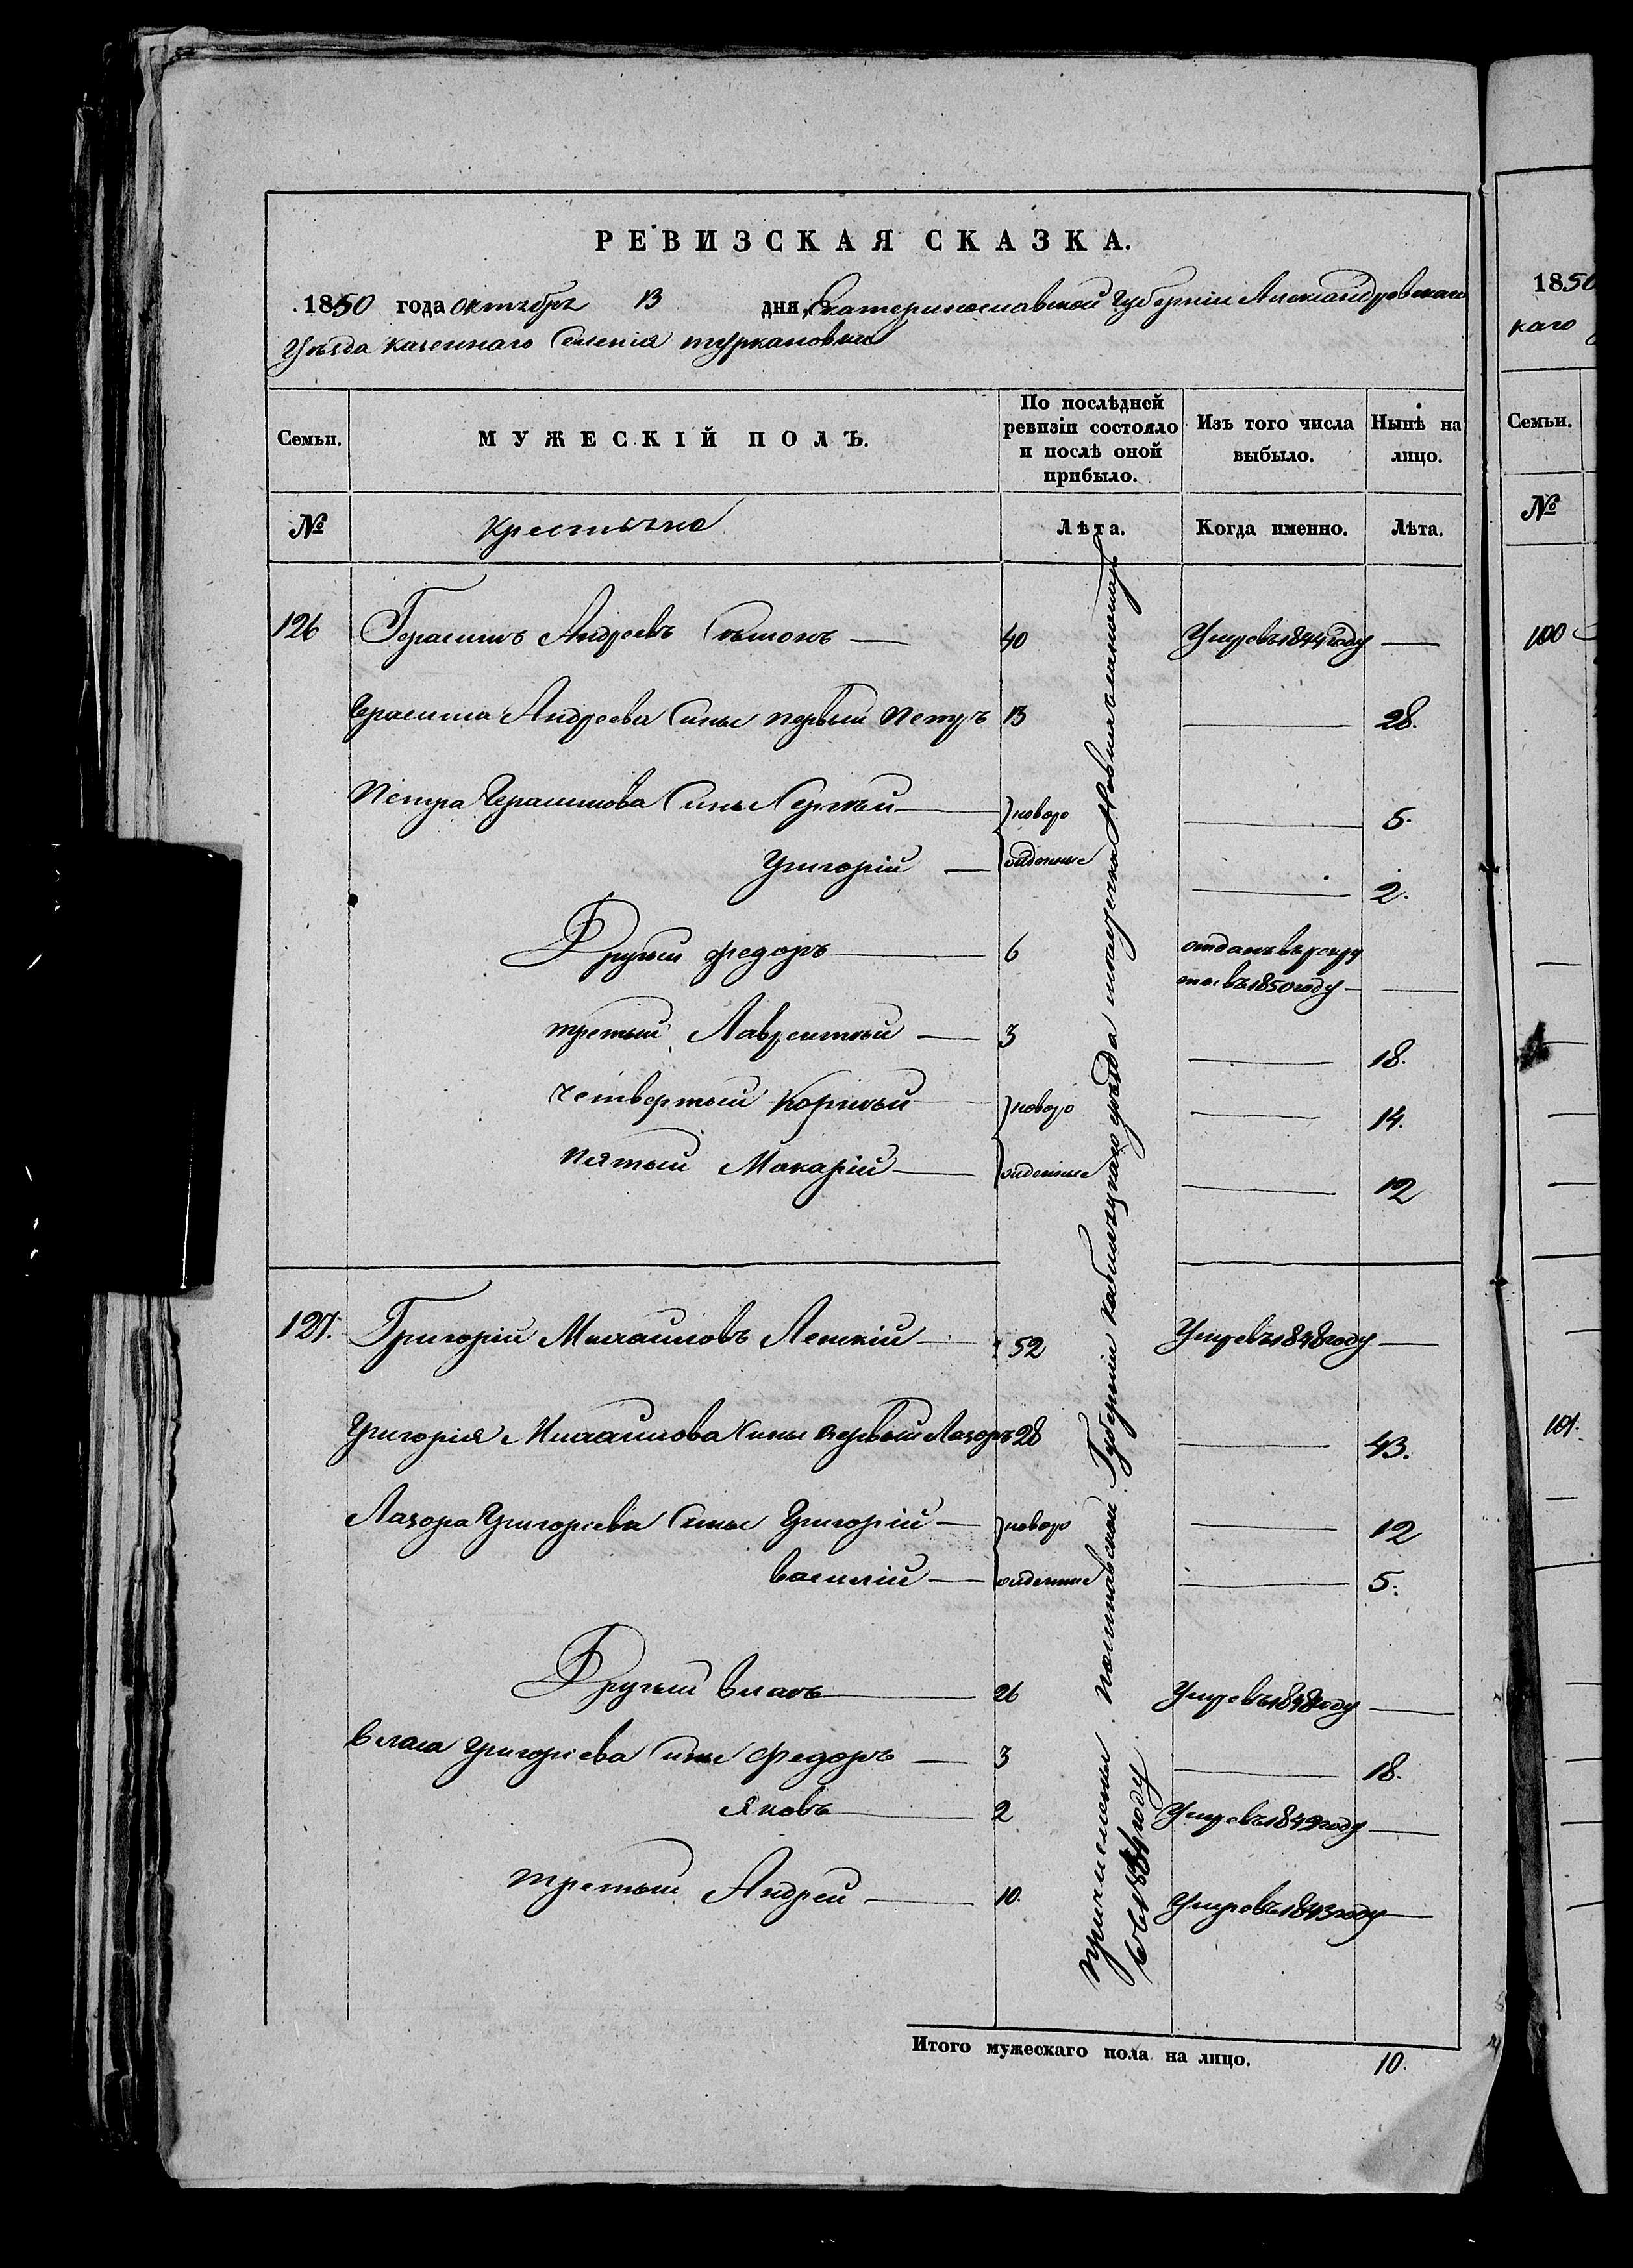 РЕВИЗСКАЯ СКАЗКА.
1850 года октября 13 дня, Екатеринославской Губерніи Александровскаго
Уѣзда казеннаго Селенія туркановки
Семьи. МУЖЕСКІЙ ПОЛЪ. По послѣдней ревизіи состояло и послѣ оной прибыло. Изъ того числа выбыло. Нынѣ на лицо.
№ Крестьяне Лѣта. Когда именно. Лѣта.
126 Герасимъ Андреевъ 40 Умре въ 1844 году —
Герасима Андреева Сыны первый Петръ 13 — 28.
Петра Герасимова Сыны Сергѣй — новоро — 5.
Григорій — жденные — 2.
Другый федоръ — 6 отданъ въ рекру
ты въ 1850 году —
третый Лаврентый — 3 — 18.
четвертый Корнѣй новоро — 14.
пятый Макарій — жденные — 12
127. Григорій Михаиловъ — 52 Умре въ 1848 году —
Григорія Михаилова Сыны первый Лазоръ 28 — 43.
Лазора Григорьева Сыны Григорій — новоро — 12
василій — жденные — 5.
Другый власъ — 26 Умре въ 1848 году —
власа Григорьева Сыны Федоръ — 3 — 18.
Яковъ — 2 Умре въ 1849 году —
третый Андрей — 10. Умре въ 1843 году —
причислены полтавской Губерніи кобыляцкаго уѣзда
году
Итого мужескаго пола на лицо. 10.
1850
каго
Семьи.
№
100
101.